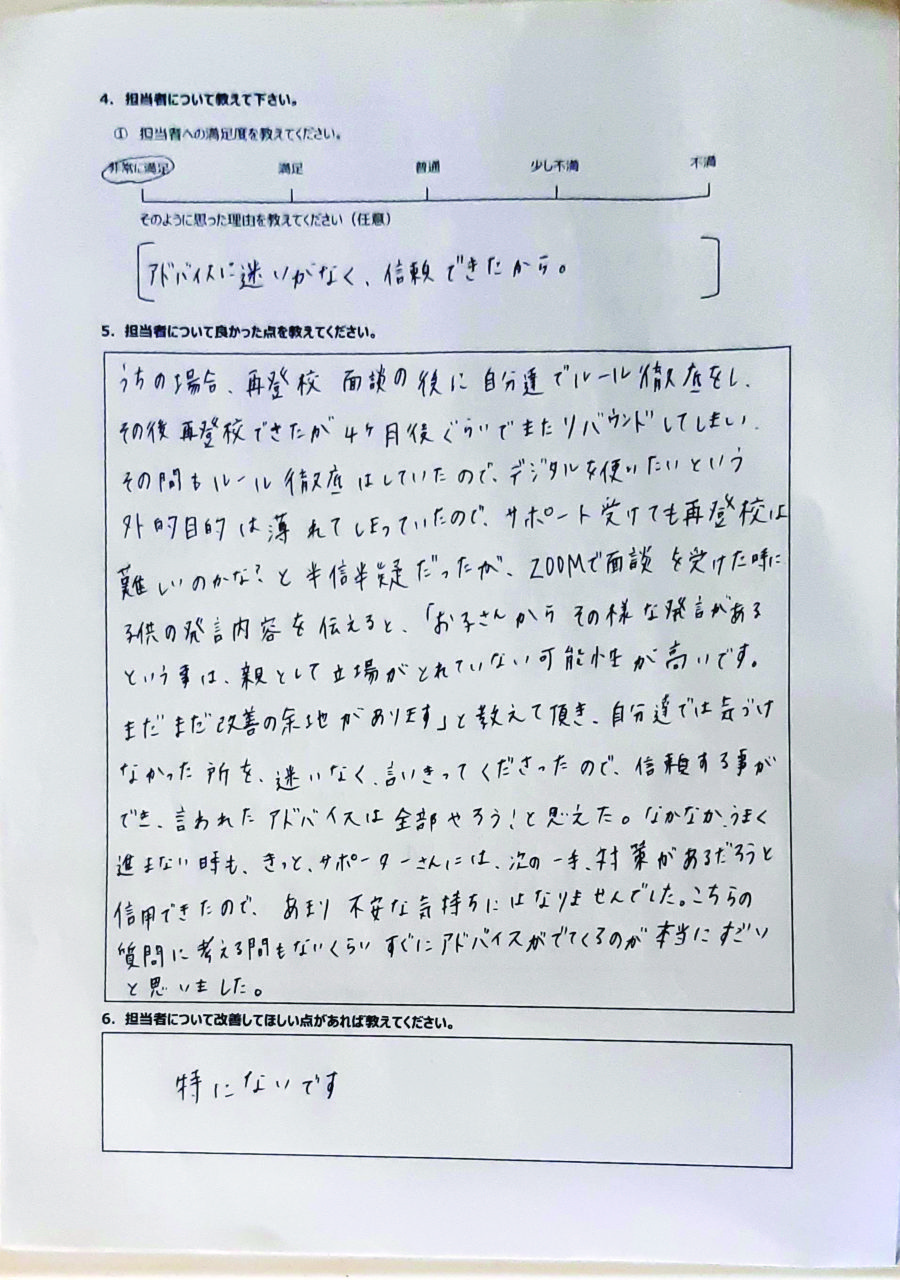 4. 担当者について教えて下さい。
① 担当者への満足度を教えてください。
非常に満足 満足 普通 少し不満 不満
そのように思った理由を教えてください（任意）
アドバイスに迷いがなく、信頼できたから。
5. 担当者について良かった点を教えてください。
うちの場合、再登校 面談の後に自分達でルール徹底をし、
その後再登校できたが4ヶ月後ぐらいでまたリバウンドしてしまい、
その間もルール徹底はしていたので、デジタルを使いたいという
外的目的は薄れてしまっていたので、サポート受けても再登校は
難しいのかな?と半信半疑だったが、ZOOMで面談を受けた時に
子供の発言内容を伝えると、「お子さんからその様な発言がある
という事は、親として立場がとれていない可能性が高いです。
まだまだ改善の余地があります」と教えて頂き、自分達では気づけ
なかった所を、迷いなく、言いきってくださったので、信頼する事が
でき、言われたアドバイスは全部やろう!と思えた。なかなか、うまく
進まない時も、きっと、サポーターさんには、次の一手、対策があるだろうと
信用できたので、あまり不安な気持ちにはなりませんでした。こちらの
質問に考える間もないくらいすぐにアドバイスがでてくるのが本当にすごい
と思いました。
6. 担当者について改善してほしい点があれば教えてください。
特にないです